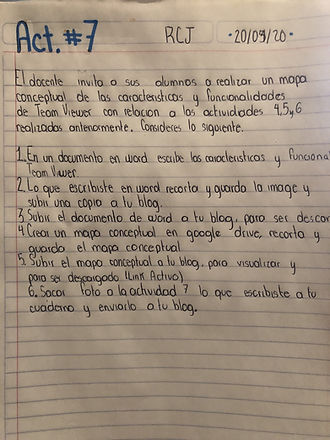 Act.#7 RCJ ·20/03/20·
El docente invita a sus alumnos a realizar un mapa
conceptual de las caracteristicas y funcionalidades
de Team Viewer con relacion a las actividades 4,5,y6
realizadas anteriormente. Consideres lo siguiente.
1. En un documento en word escribe las caracteristicas y funciona
Team Viwer
2. Lo que escribiste en word recorta y guarda la image y
subir una copia a tu blog.
3. Subir el documento de word a tu blog, para ser descar
4. Crear un mapa conceptual en google drive, recorta y
guarda el mapa conceptual
5. Subir el mapa conceptual a tu blog, para visualizar y
para ser descargado (Link Activo)
6. Sacar foto a la actividad 7 lo que escribiste a tu
cuaderno y enviarlo a tu blog.